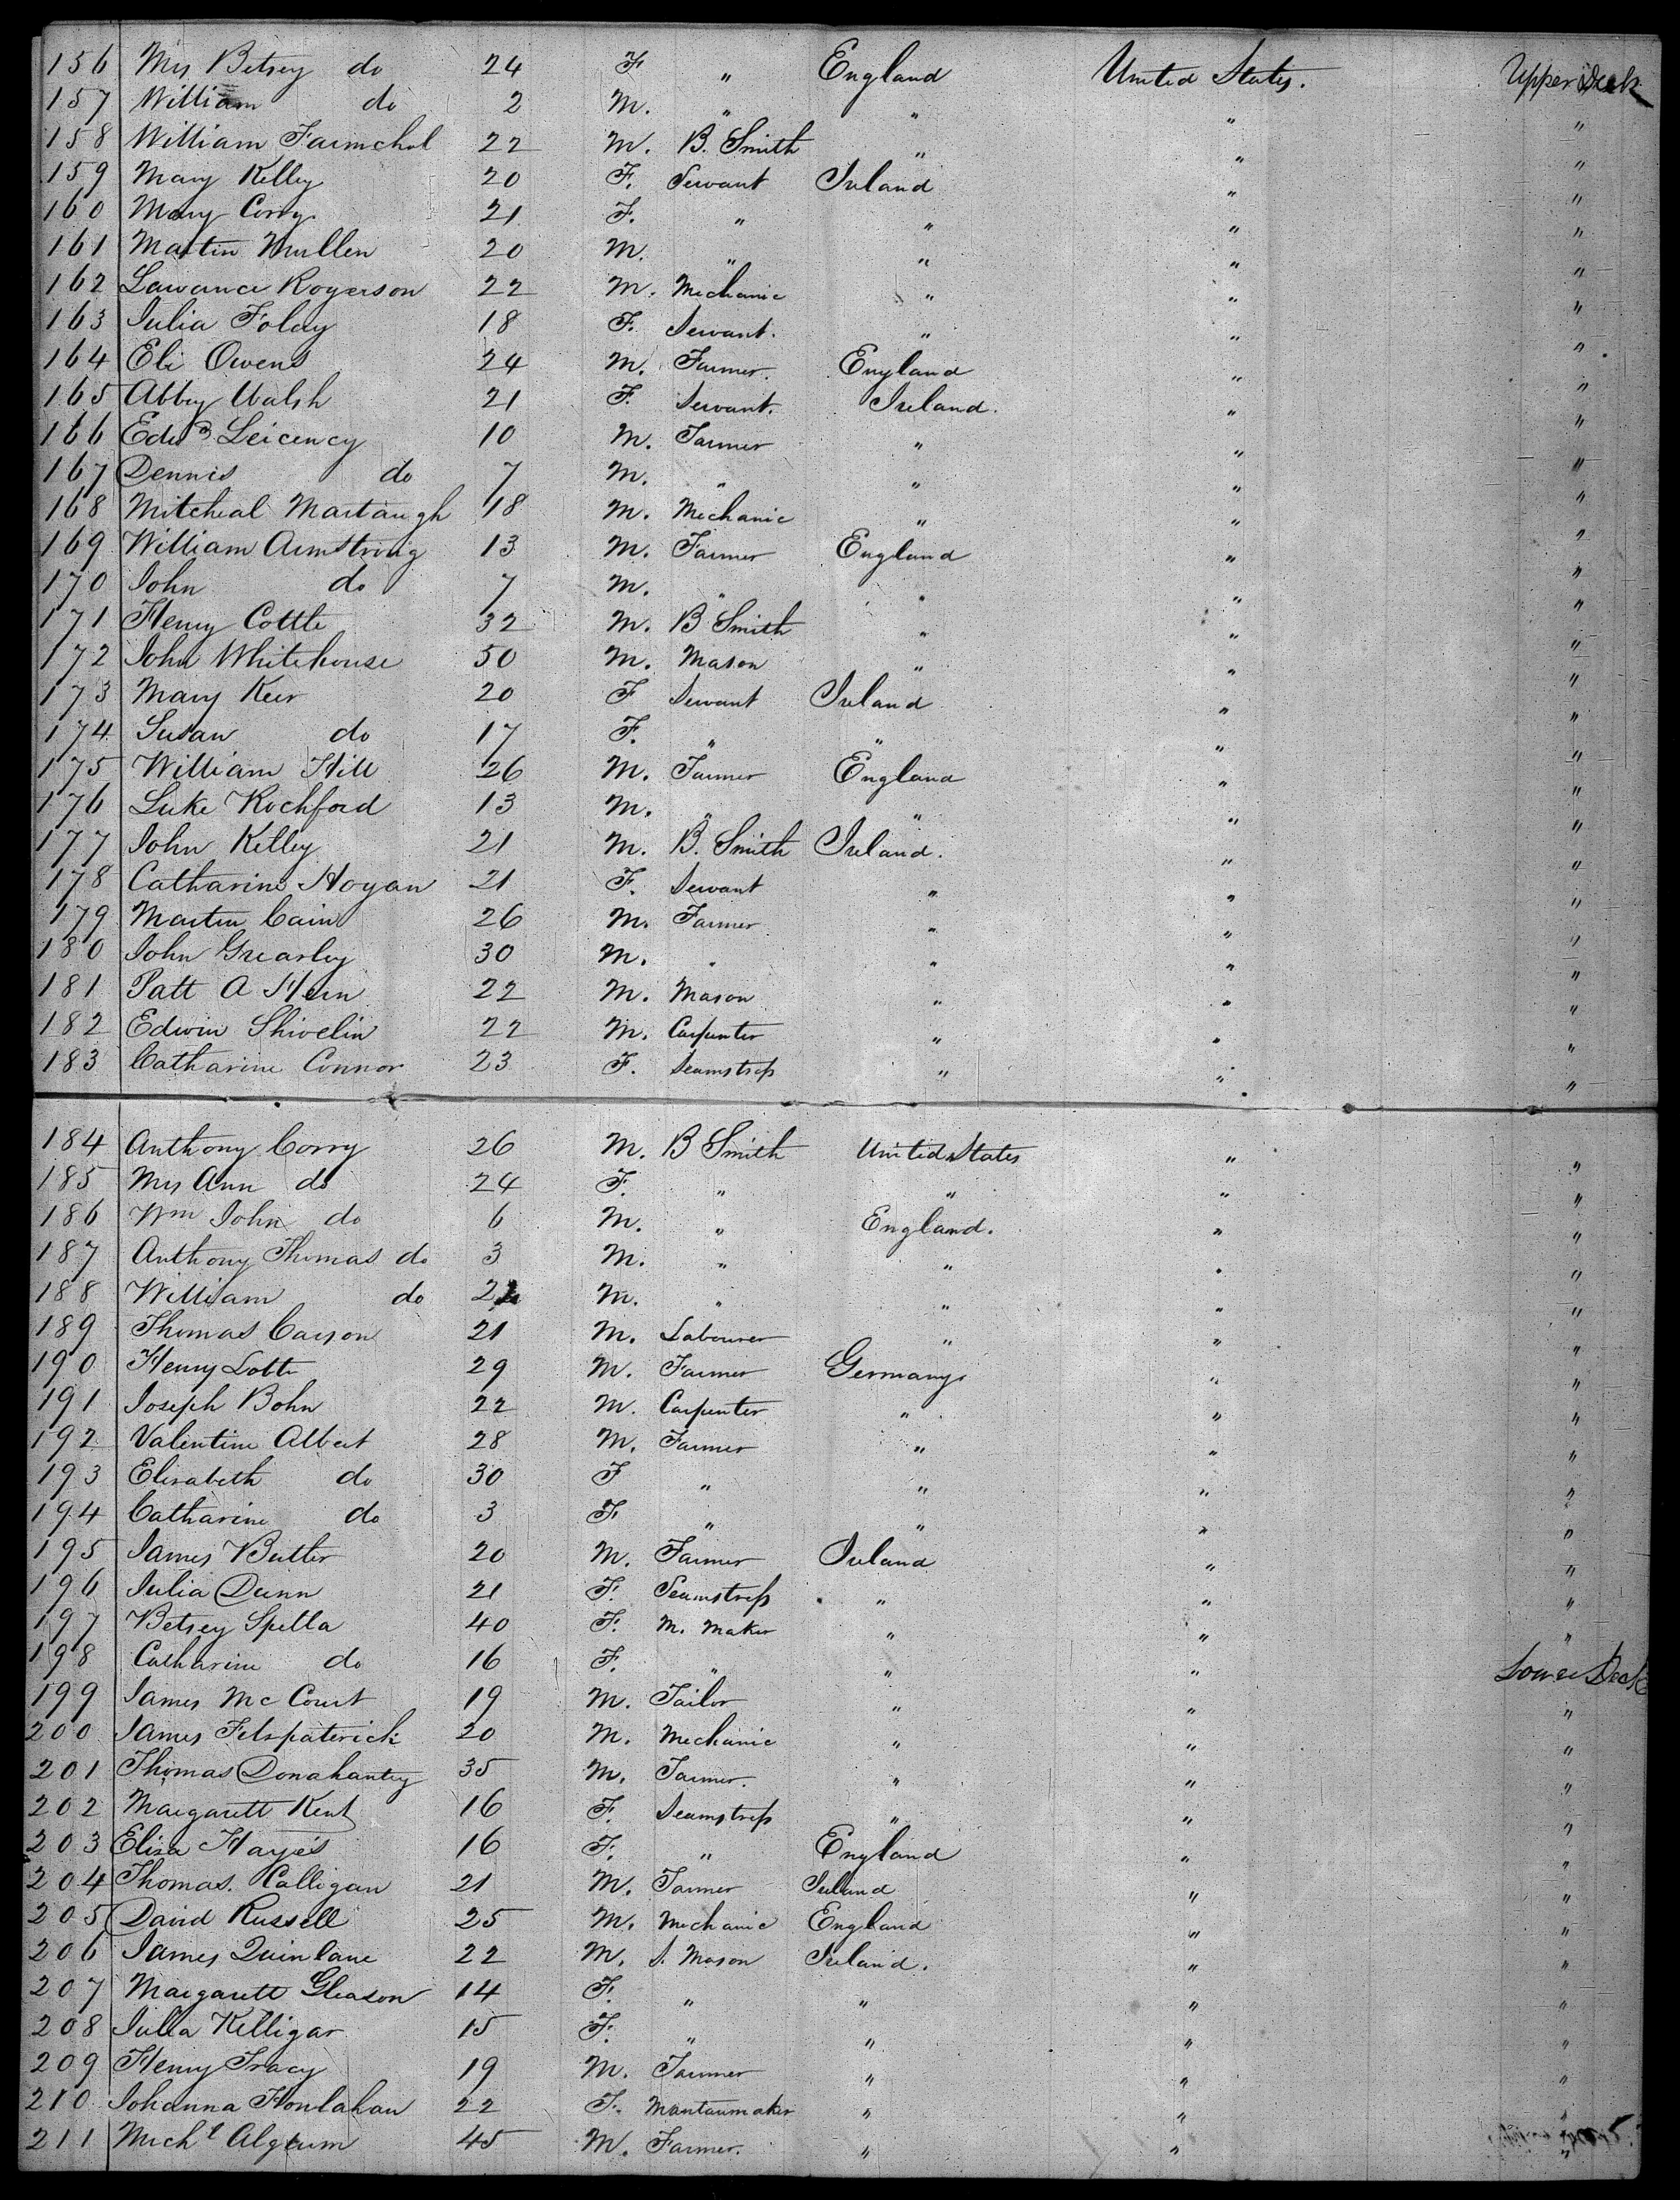 156 Mrs Betsey do 24 F " England United States. Upper Deck
157 William do 2 M. " " " "
158 William Fairnchol 22 M. B. Smith " " "
159 Mary Kelley 20 F. Servant Ireland " "
160 Mary Corry. 21 F. " " " "
161 Martin Mullen 20 M. " " " "
162 Lawrance Rogerson 22 M. Mechanic " " "
163 Julia Foley 18 F. Servant. " " "
164 Eli Owens 24 M. Farmer. England " "
165 Abby Walsh 21 F. Servant. Ireland. " "
166 Edwd Leicency 10 M. Farmer " " "
167 Dennis do 7 M. " " " "
168 Mitcheal Martaugh 18 M. Mechanic " " "
169 William Armstrong 13 M. Farmer England " "
170 John do 7 M. " " " "
171 Henry Cottle 32 M. B Smith " " "
172 John Whitehouse 50 M. Mason " " "
173 Mary Keer 20 F Servant Ireland " "
174 Susan do 17 F. " " " "
175 William Hill 26 M. Farmer England " "
176 Luke Rochford 13 M. " " " "
177 John Kelley 21 M. B. Smith Ireland. " "
178 Catharine Hogan 21 F. Servant " " "
179 Martin Cain 26 M. Farmer " " "
180 John Grearley 30 M. " " " "
181 Patt A Hern 22 M. Mason " " "
182 Edwin Shivelin 22 M. Carpenter " " "
183 Catharine Connor 23 F. Seamstress " " "
184 Anthony Corry 26 M. B Smith United States " "
185 Mrs Ann do 24 F. " " " "
186 Wm John do 6 M. " England. " "
187 Anthony Thomas do 3 M. " " " "
188 William do M. " " " "
189 Thomas Carson 21 M. Labourer " " "
190 Henry Lotte 29 M. Farmer Germany " "
191 Joseph Bohn 22 M. Carpenter " " "
192 Valentine Albert 28 M. Farmer " " "
193 Elisabeth do 30 F " " " "
194 Catharine do 3 F " " " "
195 James Butler 20 M. Farmer Ireland " "
196 Julia Dunn 21 F. Seamstress " " "
197 Betsey Spella 40 F. M. Maker " " "
198 Catharine do 16 F. " " " Lower Deck
199 James McCourt 19 M. Tailor " " "
200 James Fitspaterick 20 M. Mechanic " " "
201 Thomas Donahantey 35 M. Farmer. " " "
202 Margarett Kent 16 F. Seamstress " " "
203 Eliza Hayes 16 F. " England " "
204 Thomas. Calligan 21 M. Farmer Ireland " "
205 David Russell 25 M. Mechanic England " "
206 James Quinlane 22 M. S. Mason Ireland. " "
207 Margarett Gleason 14 F. " " " "
208 Julia Killigar 15 F. " " " "
209 Henry Tracy 19 M. Farmer " " "
210 Johanna Honlahan 22 F. Mantaumaker " " "
211 Michl Algeum 45 M. Farmer. " " "